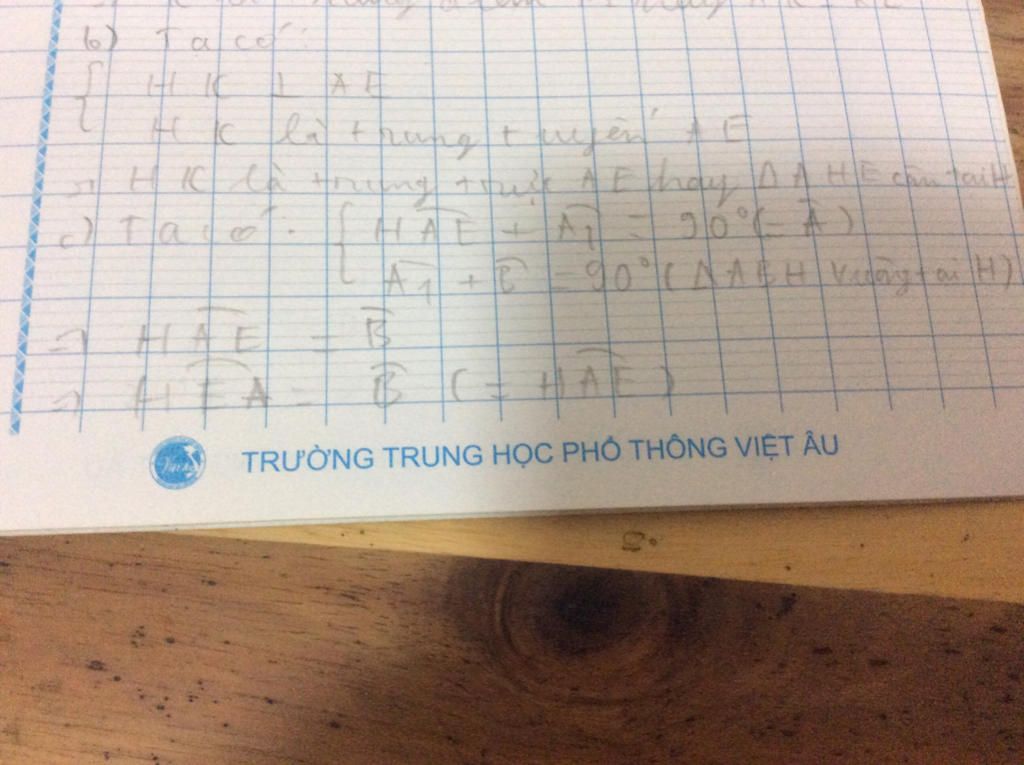 b) Ta có:
{ HK ⊥ AE
HK là trung tuyến AE
=> HK là trung trực AE hay Δ AHE cân tại H
c) Ta có: { HAE + A1 = 90° (= A)
A1 + B = 90° (Δ ABH vuông tại H)
=> HAE = B
=> HEA = B (= HAE)
TRƯỜNG TRUNG HỌC PHỔ THÔNG VIỆT ÂU